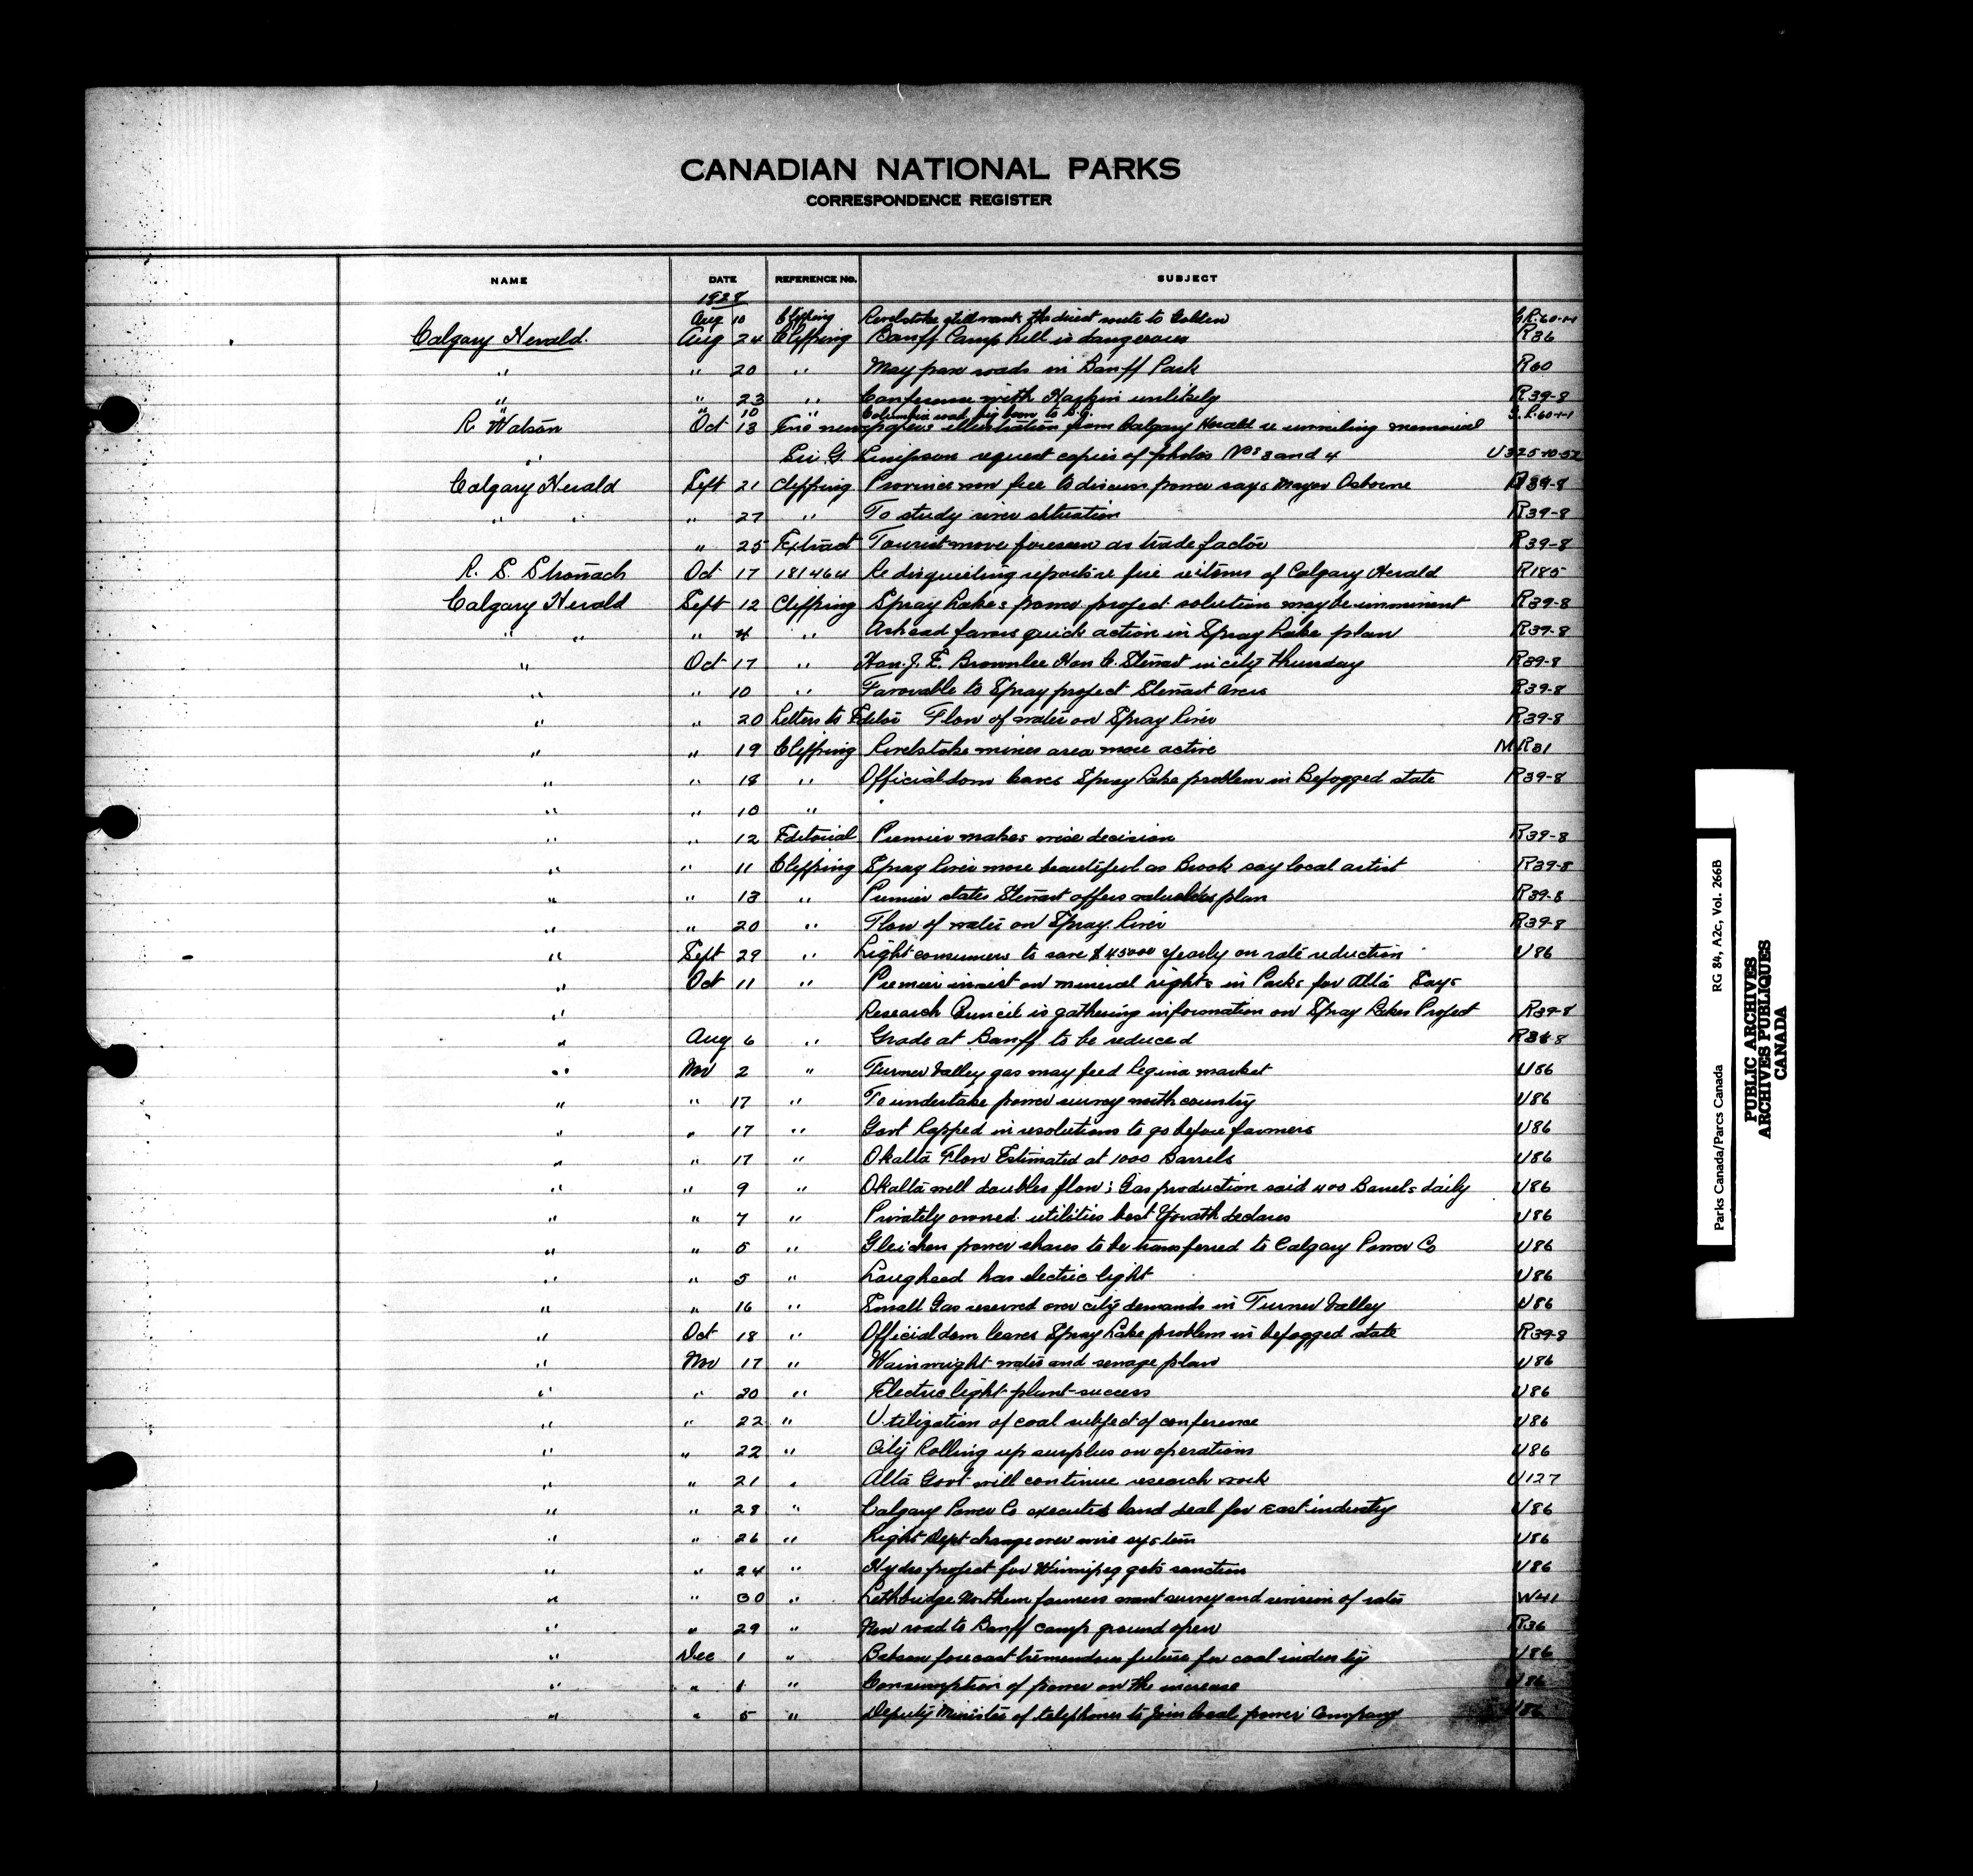 CANADIAN NATIONAL PARKS
CORRESPONDENCE REGISTER
NAME DATE REFERENCE No. SUBJECT
1928
Aug 10 Clipping Revelstoke still wants the direct route to Golden G.R.60-1-1
Calgary Herald. Aug 24 Clipping Banff Camp hill is dangerous R36
" " 20 " May pave roads in Banff Park R60
" " 23 " Conference with unlikely R39-8
" " 10 " Columbia road big boon to B.C. G.R.60-1-1
R. Watson Oct 13 newspapers illustration from Calgary Herald re unveiling memorial
" Sir G. Simpson request copies of photos Nos 3 and 4 U325-10-52
Calgary Herald Sept 21 Clipping Province now free to discuss power says Mayor Osborne R39-8
" " " 27 " To study river situation R39-8
" 25 Extract Tourist move foreseen as trade factor R39-8
R. S. Stronach Oct 17 181464 Re disquieting reports re fire items of Calgary Herald R185
Calgary Herald Sept 12 Clipping Spray Lakes power project solution may be imminent R39-8
" " " 4 " favors quick action in Spray Lake plan R39-8
" Oct 17 " Hon. J. E. Brownlee Hon C. Stewart in city Thursday R39-8
" " 10 " Favorable to Spray project Stewart R39-8
" " 20 Letters to Editor Flow of water on Spray River R39-8
" " 19 Clipping Revelstoke mines area more active MR31
" " 18 " Officialdom leaves Spray Lake problem in Befogged state R39-8
" " 10 "
" " 12 Editorial Premier makes wise decision R39-8
" " 11 Clipping Spray River more beautiful as Brook say local artist R39-8
" " 13 " Premier states Stewart offers plan R39-8
" " 20 " Flow of water on Spray River R39-8
" Sept 29 " Light consumers to save $45000 yearly on rate reduction U86
" Oct 11 " Premier insist on mineral rights in Parks for Alta Says
" Research Council is gathering information on Spray Lakes Project R39-8
" Aug 6 " Grade at Banff to be reduced
" Nov 2 " Turner Valley gas may feed Regina market U86
" " 17 " To undertake power survey north country U86
" " 17 " Govt Rapped in resolutions to go before farmers U86
" " 17 " Okalta Flow Estimated at 1000 Barrels U86
" " 9 " Okalta well doubles flow; Gas production said 400 Barrels daily U86
" " 7 " Privately owned utilities best Yorath declares U86
" " 5 " Gleichen power shares to be transferred to Calgary Power Co U86
" " 5 " Lougheed has electric light U86
" " 16 " Small Gas reserved over city demands in Turner Valley U86
" Oct 18 " Officialdom leaves Spray Lake problem in befogged state R39-8
" Nov 17 " Wainwright water and sewage plan U86
" " 20 " Electric light plant success U86
" " 22 " Utilization of coal subject of conference U86
" " 22 " City Rolling up surplus on operations U86
" " 21 " Alta Govt will continue research work U127
" " 28 " Calgary Power Co executes land deal for East industry U86
" " 26 " Light Dept change over wire system U86
" " 24 " Hydro project for Winnipeg gets sanction U86
" " 30 " Lethbridge Northern farmers want survey and revision of rates W41
" " 29 " New road to Banff camp ground open R36
" Dec 1 " Babson forecast tremendous future for coal industry U86
" " 1 " Consumption of power on the increase U86
" " 5 " Deputy Minister of telephones to join local power Company U86
Parks Canada/Parcs Canada RG 84, A2c, Vol. 266B
PUBLIC ARCHIVES
ARCHIVES PUBLIQUES
CANADA